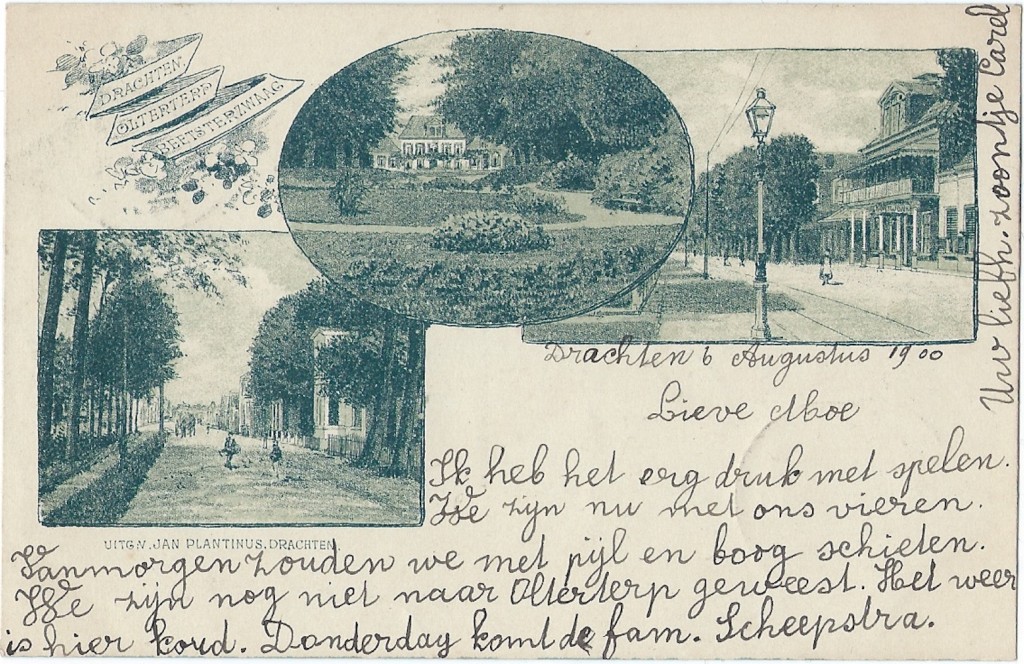 DRACHTEN.
OLTERTERP
BEETSTERZWAAG
UITGN. JAN PLANTINUS. DRACHTEN.
Drachten 6 Augustus 1900
Lieve Moe
Ik heb het erg druk met spelen.
We zijn nu met ons vieren.
Vanmorgen zouden we met pijl en boog schieten.
We zijn nog niet naar Olterterp geweest. Het weer
is hier koud. Donderdag komt de fam. Scheepstra.
Uw liefh. zoontje Carel